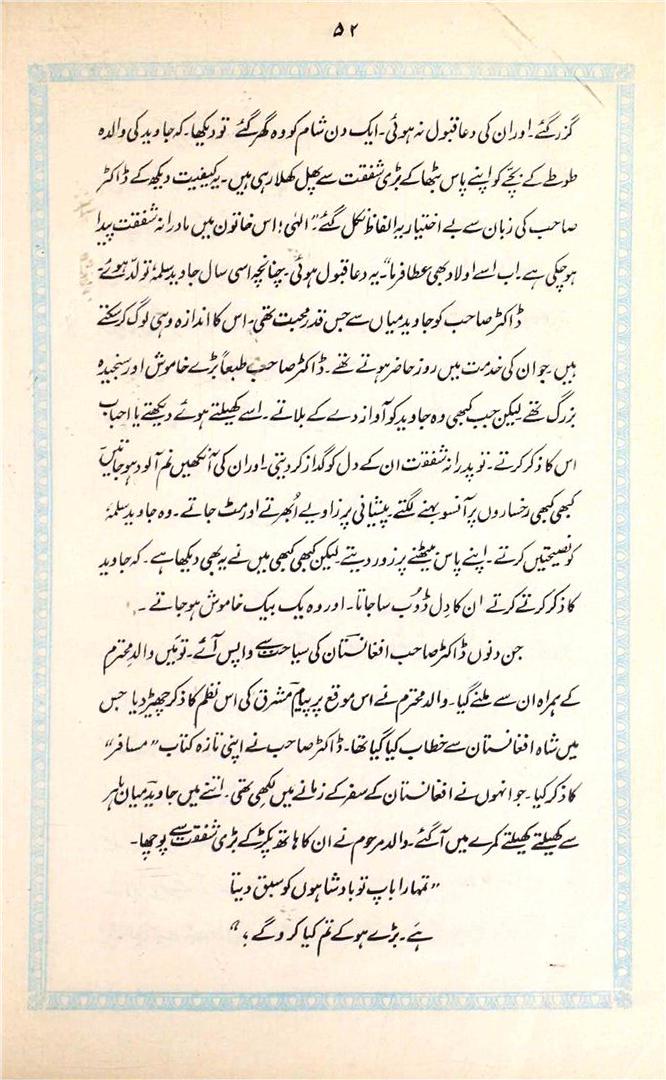 ۵۲
گزر گئے۔ اور ان کی دعا قبول نہ ہوئی۔ ایک دن شام کو وہ گھر گئے تو دیکھا۔ کہ جاوید کی والدہ
طوطے کے بچّے کو اپنے پاس بٹھا کے بڑی شفقت سے پھل کھلا رہی ہیں۔ یہ کیفیت دیکھ کے ڈاکٹر
صاحب کی زبان سے بے اختیار یہ الفاظ نکل گئے۔ "الٰہی! اس خاتون میں مادرانہ شفقت پیدا
ہو چکی ہے۔ اب اسے اولاد بھی عطا فرما" یہ دعا قبول ہوئی۔ چنانچہ اسی سال جاوید سلمہٗ تولّد ہوئے
ڈاکٹر صاحب کو جاوید میاں سے جس قدر محبت تھی۔ اس کا اندازہ وہی لوگ کر سکتے
ہیں۔ جو ان کی خدمت میں روز حاضر ہوتے تھے۔ ڈاکٹر صاحب طبعاً بڑے خاموش اور سنجیدہ
بزرگ تھے لیکن جب کبھی وہ جاوید کو آواز دے کے بلاتے۔ اسے کھیلتے ہوئے دیکھتے یا احباب
اس کا ذکر کرتے۔ تو پدرانہ شفقت ان کے دل کو گداز کر دیتی۔ اور ان کی آنکھیں نم آلود ہو جاتیں
کبھی کبھی رخساروں پر آنسو بہنے لگتے۔ پیشانی پر زاویے اُبھرتے اور مٹ جاتے۔ وہ جاوید سلمہٗ
کو نصیحتیں کرتے۔ اپنے پاس بیٹھنے پر زور دیتے لیکن کبھی کبھی میں نے یہ بھی دیکھا ہے۔ کہ جاوید
کا ذکر کرتے کرتے ان کا دِل ڈوب سا جاتا۔ اور وہ یک بیک خاموش ہو جاتے ۔
جن دنوں ڈاکٹر صاحب افغانستان کی سیاحت سے واپس آئے۔ تو میَں والدِ محترم
کے ہمراہ ان سے ملنے گیا۔ والد محترم نے اس موقع پر پیامِ مشرق کی اس نظم کا ذکر چھیڑ دیا جس
میں شاہ افغانستان سے خطاب کیا گیا تھا۔ ڈاکٹر صاحب نے اپنی تازہ کتاب "مسافر"
کا ذکر کیا۔ جو انہوں نے افغانستان کے سفر کے زمانے میں لکھی تھی۔ اتنے میں جاوید میاں باہر
سے کھیلتے کھیلتے کمرے میں آ گئے۔ والد مرحوم نے ان کا ہاتھ پکڑ کے بڑی شفقت سے پوچھا۔
"تمہارا باپ تو بادشاہوں کو سبق دیتا
ہَے۔ بڑے ہو کے تم کیا کرو گے ؟"